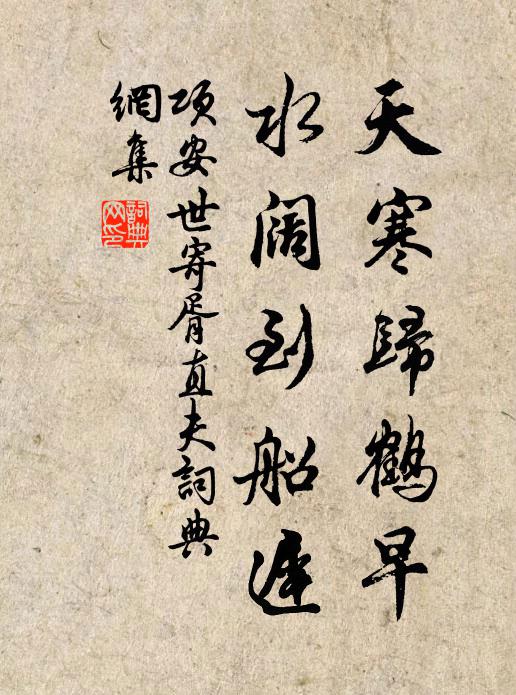 天寒歸鶴早
水闊到船遲
項安世寄胥直夫詞典
網集
詞典網印